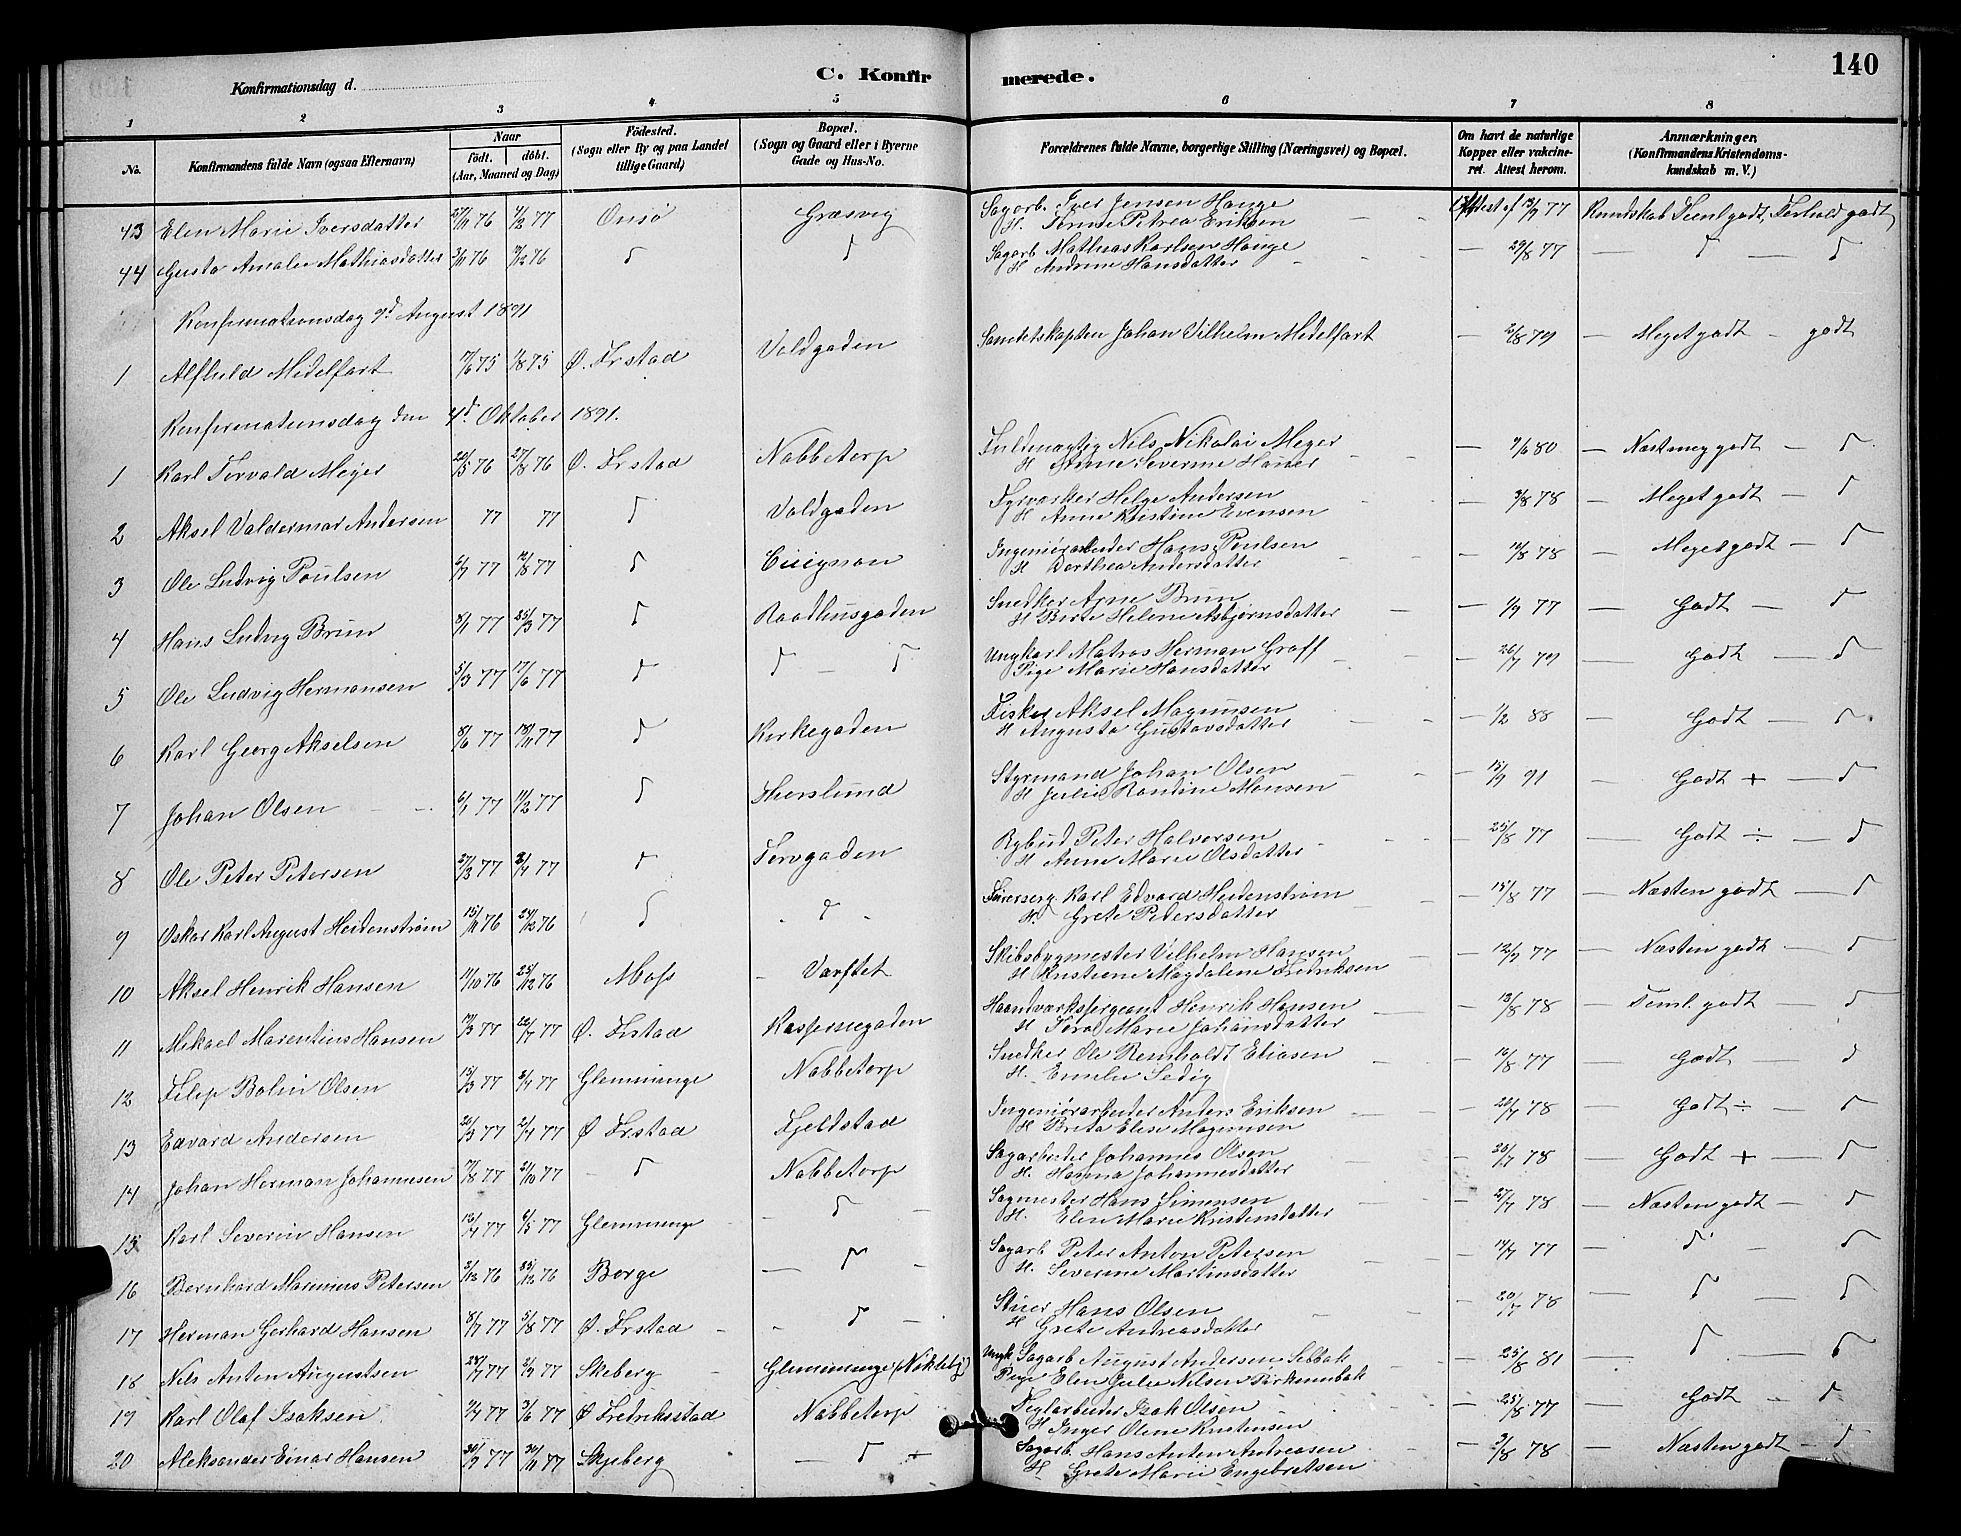 140
Konfirmationsdag d.
C. Konfirmerede.
1 2 3 4 5 6 7 8
No.
Konfirmandens fulde Navn (ogsaa Efternavn)
Naar
født. døbt.
(Aar, Maaned og Dag)
Fødested.
(Sogn eller By og paa Landet
tillige Gaard)
Bopæl.
(Sogn og Gaard eller i Byerne
Gade og Hus-No.
Forældrenes fulde Navne, borgerlige Stilling (Næringsvei) og Bopæl.
Om havt de naturlige
Kopper eller vakcine-
ret. Attest herom.
Anmærkninger.
(Konfirmandens Kristendoms-
kundskab m. V.)
43 Elen Marie Iversdatter 27/11 76 4/2 77 Onsø Græsvig Sagarb. Iver Jensen Hauge
H. Petrea Eriksen Attest af 13/9 77 Kundskab Teml godt, Forhold godt
44 Gusta Amalie Mathiasdatter 76 76 Sagarb Mathias Karlsen Hauge
H Andrine Hansdatter — 29/8 77 —
Konfirmationsdag 9d August 1891
1 Alfhild Midelfart 17/6 75 1/8 75 Ø. Frstad Voldgaden Sanitetskapten Johan Vilhelm Midelfart — 2/8 79 — Meget godt — godt
Konfirmationsdag den 4d Oktober 1891.
1 Karl Torvald Meyer 20/5 76 27/8 76 Ø. Frstad Nabbetorp Fuldmægtig Nils Nikolai Meyer
H Severine — 9/6 80 —
2 Aksel Valdermar Andersen 77 77 Voldgaden Fyrværker Helge Andersen
H Anne Kristine Evensen — 3/8 78 — Meget godt —
3 Ole Ludvig Poulsen 6/7 77 12/8 77 Ingeniørarbeider Hans Poulsen
H Dorthea Andersdatter — 78 — Meget godt —
4 Hans Ludvig Brun 8/1 77 25/3 77 Raadhusgaden Snedker Arne Brun
H Berte Helene Asbjørnsdatter — 77 — Godt —
5 Ole Ludvig Hermansen 5/3 77 17/6 77 Ungkarl Matros Herman Graff
Pige Marie Hansdatter — 26/7 79 — Godt —
6 Karl Georg Akselsen 8/6 77 18/11 77 Kirkegaden Fisker Aksel Magnusen
H Augusta Gustavsdatter — 1/2 88 — Godt —
7 Johan Olsen 6/1 77 11/2 77 Thorslund Styrmand Johan Olsen
H Julie Randine Monsen — 15/9 91 — Godt + —
8 Ole Peter Petersen 27/3 77 77 Torvgaden Rybud Peter Halversen
H Anne Marie Olsdatter — 25/8 77 — Godt ÷ —
9 Oskar Karl August Heidenstrøm 15/11 76 24/12 76 Karl Edvard Heidenstrøm
H. Grete Pedersdatter — 15/8 77 — Næsten godt —
10 Aksel Henrik Hansen 11/10 76 25/12 76 Moss Værftet Skibsbygmester Vilhelm Hansen
H Kristiene Magdalene Fredriksen — 12/9 77 — Næsten godt —
11 Mikael Marentius Hansen 77 77 Ø. Frstad Kasernegaden Haandværksserjeant Henrik Hansen
H Marie Johansdatter — 13/8 78 — Teml. godt —
12 Filip Bolin Olsen 15/3 77 77 Glemminge Nabbetorp Snedker Ole Reinholdt Eliasen
H. Emilie Sedig — 16/8 77 — Godt —
13 Edvard Andersen 20/3 77 2/4 77 Ø Frstad Fjeldstad Ingeniørarbeider Anders Eriksen
H Brita Elise Magnusen — 20/7 78 — Godt ÷ —
14 Johan Herman Johannesen 77 21/10 77 Nabbetorp Sagarbeider Johannes Olsen
H. Hanna Johannesdatter — 20/7 78 — Godt + —
15 Karl Severin Hansen 13/4 77 6/5 77 Glemminge Sagmester Hans Simensen
H. Elen Marie Kristensdatter — 27/7 78 — Næsten godt —
16 Bernhard Marinius Petersen 3/12 76 25/12 76 Borge Sagarb Peter Anton Petersen
H. Severine Martinsdatter — 14/7 77 —
17 Herman Gerhard Hansen 8/7 77 5/8 77 Ø. Frstad Hans Olsen
H Grete Andreasdatter — 20/7 78 —
18 Nils Anton Augustsen 23/7 77 2/9 77 Skeberg Glemminge (Nikleby) Ungk Sagarb August Andersen Sebbak
Pige Elen Julie Nilsen Birkenebak — 25/8 81 —
19 Karl Olaf Isaksen 77 3/6 77 Ø Fredriksstad Nabbetorp Teglarbeider Isak Olsen
H Inger Olene Kristensen — 25/8 77 — Godt —
20 Aleksander Einar Hansen 30/9 77 30/11 77 Skjeberg Sagarb. Hans Anton Andreasen
H Grete Marie Engebretsen — 3/8 78 — Næsten godt —